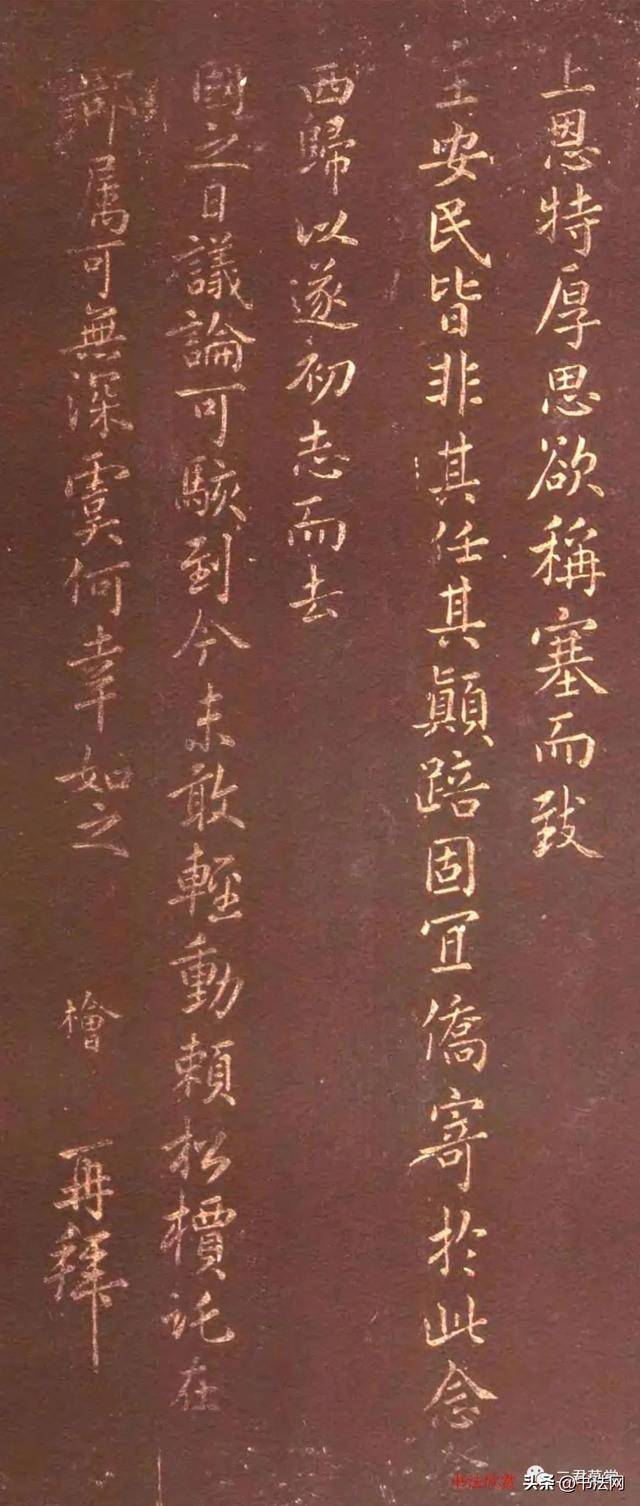 上恩特厚思欲稱塞而致
主安民皆非其任其顛踣固宜僑寄於此念
西歸以遂初志而去
國之日議論可駭到今未敢輕動賴松檟託在
部属可無深虞何幸如之 檜 再拜
书法欣赏 二君草堂
头条@书法网